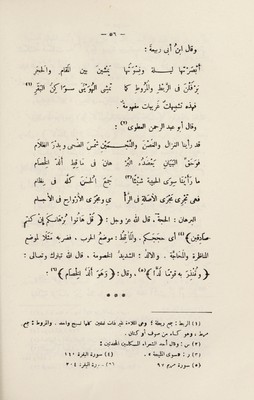 — ٥٦ —
وقال ابنُ أبى ربيعة :
أَبْصَرْتُهَا ليـــلة ونِسْوَتُهَا يَمْشِينَ بين المَقَامِ والحَجَرِ
يَرْفُلْنَ فى الرَّيْطِ والمُرُوطِ كما تَمْشِى الهُوَيْنَى سَوَاكِنُ البَقَرِ (١)
فهذه تشبيهاتٌ غريبات مفهومة .
وقال أبو عبد الرحمن العطوى (٢) :
قد رأينا الغزال والغُصْنَ والنَّجْمَيْنِ شَمْسَ الضُّحى وبدْرَ الظلامِ
فَوَحَقِّ البَيَانِ يَعْضُدُه البُرْهَانُ فى مَأْقِطٍ أَلَدِّ الخِصَامِ
ما رأينا سِوَى الحبيبة شيئًا (٣) جَمَعَ الحُسْنَ كُلَّهُ فى نِظَامِ
فهى تَجْرِى مَجْرَى الأصَالَةِ فى الرَّأْىِ ومَجْرَى الأَرْوَاحِ فى الأجسامِ
البرهان : الحجة ، قال الله عز وجل : ﴿ قُلْ هَاتُوا بُرْهَانَكُمْ إِنْ كُنْتُمْ
صَادِقِينَ ﴾ (٤) أى حججكم . والمأْقِط : موضعُ الحرب ، فضربه مثلًا لموضع
المناظرة والمحاجَّة . والألدّ : الشديدُ الخصومة . قال الله تبارك وتعالى :
﴿ وَتُنْذِرَ بِهِ قَوْمًا لُدًّا ﴾ (٥) ، وقال : ﴿ وَهُوَ أَلَدُّ الْخِصَامِ ﴾ (٦) :
* * *
(١) الريط : جمع ريطة ؛ وهى الملاءة غير ذات لفقين كلها نسج واحد . والمروط : جمع
مرط ، وهو كساء من صوف أو كتان .
(٢) س : وقال أحد الشعراء المتكلمين المحدثين :
(٣) ر : « سوى المليحة » . (٤) سورة البقرة ١١٠
(٥) سورة مريم ٩٧ (٦) سورة البقرة ٢٠٤